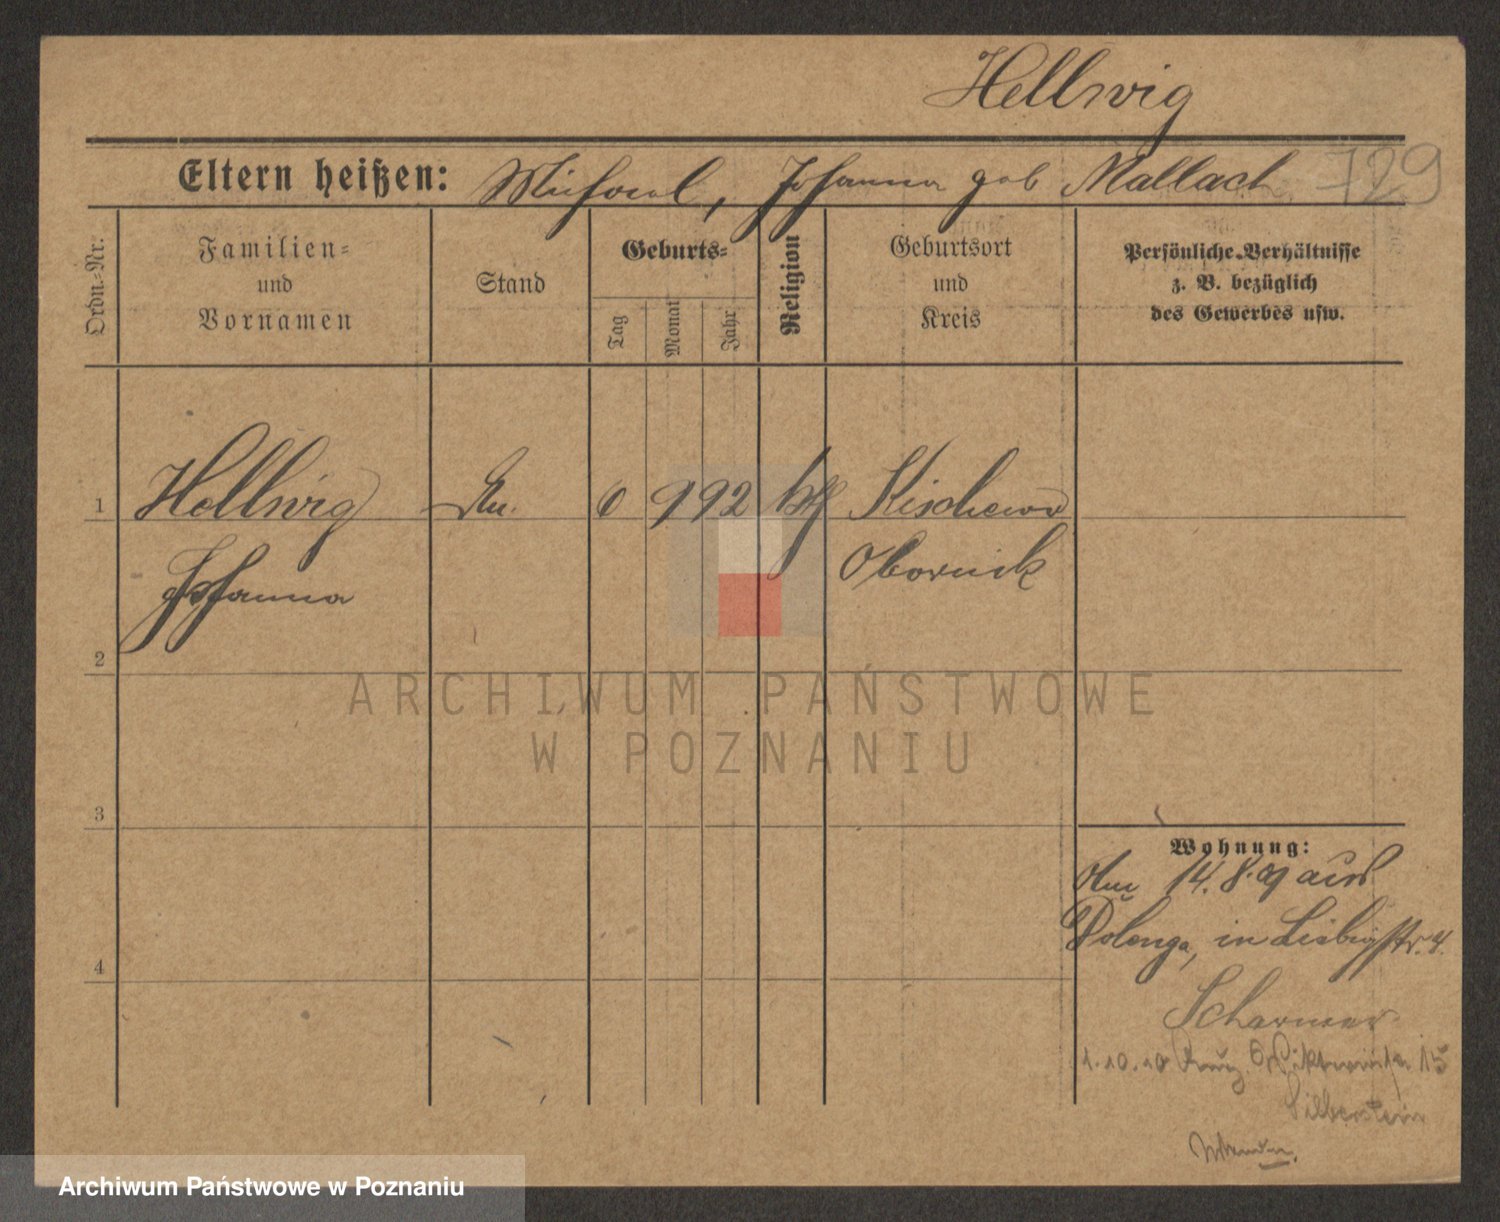 Hellwig
Eltern heißen: Michael, Johanna geb Mallach 729
Ordn.-Nr.
Familien-
und
Vornamen
Stand
Geburts-
Tag
Monat
Jahr
Religion
Geburtsort
und
Kreis
Persönliche Verhältnisse
z. B. bezüglich
des Gewerbes usw.
1 Hellwig 6 9 92 kth Kischewo
Johanna Obornik
2
3
4
Wohnung:
14. 8. 09 aus
Polenga, in Liebigstr. 4.
1.10.10 15
Silberstein
ARCHIWUM PAŃSTWOWE
W POZNANIU
Archiwum Państwowe w Poznaniu